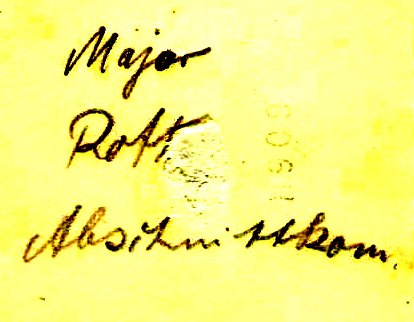 Major
Roft,
Abschnittkom.
1909